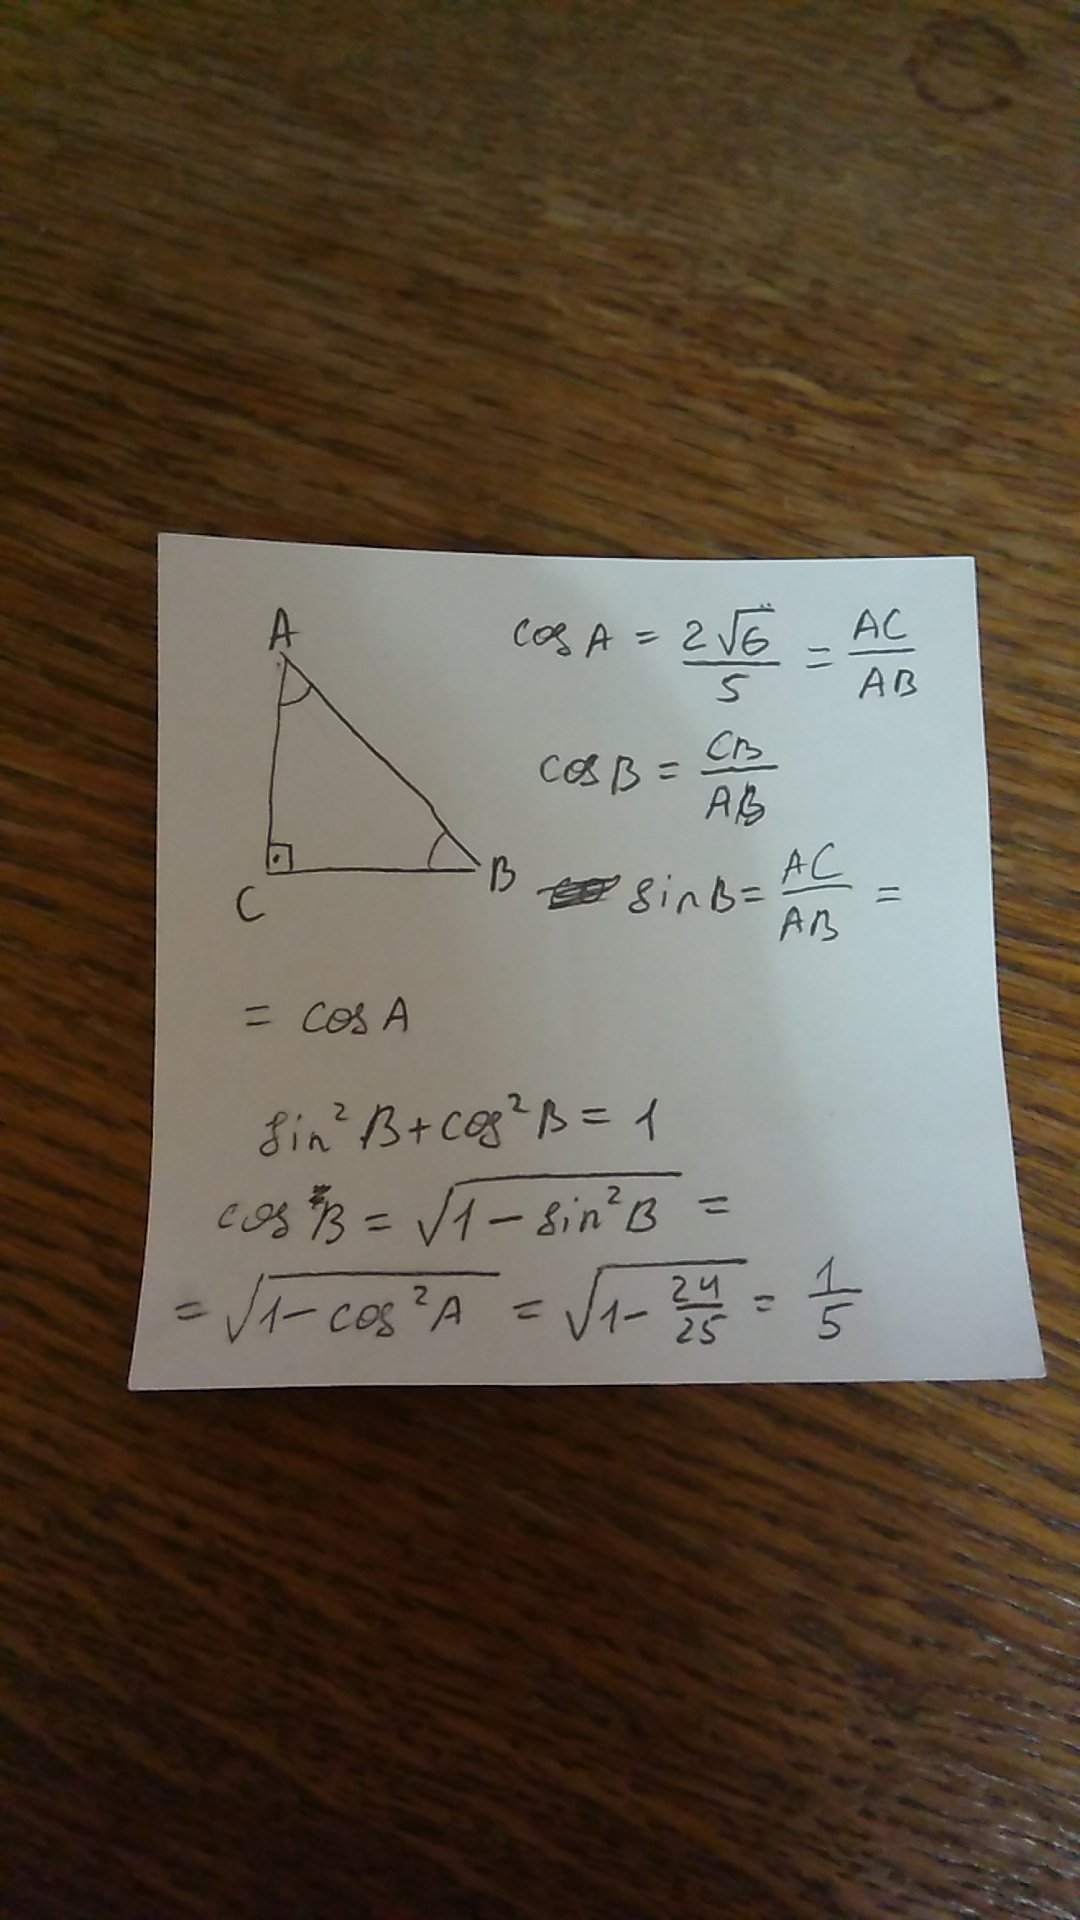 A
C
B
cos A = 2√6/5 = AC/AB
cos B = CB/AB
sin B = AC/AB =
= cos A
sin² B + cos² B = 1
cos B = √(1 - sin² B) =
= √(1 - cos² A) = √(1 - 24/25) = 1/5